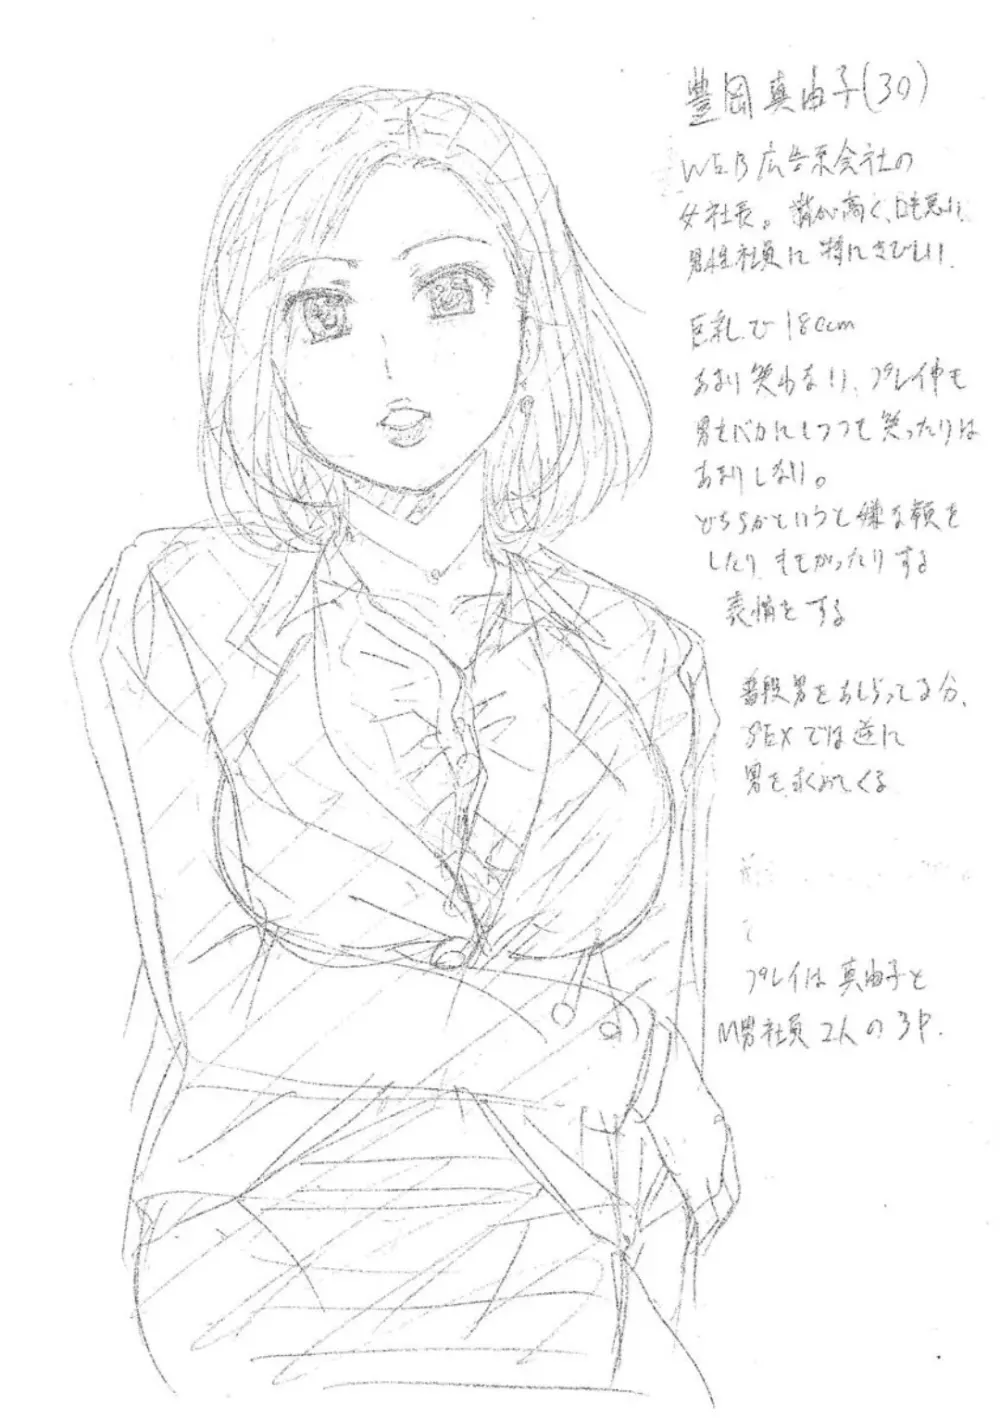 豊岡真由子(30)
WEB広告系会社の
女社長。背が高く、口も悪い、
男性社員に特にきびしい、
巨乳で180cm
あまり笑わない、プレイ中も
男をバカにしつつも笑ったりは
あまりしない。
どちらかというと嫌な顔を
したり
表情をする
普段男をあしらってる分、
SEXでは逆に
男を求めてくる
プレイは真由子と
M男社員2人の3P.